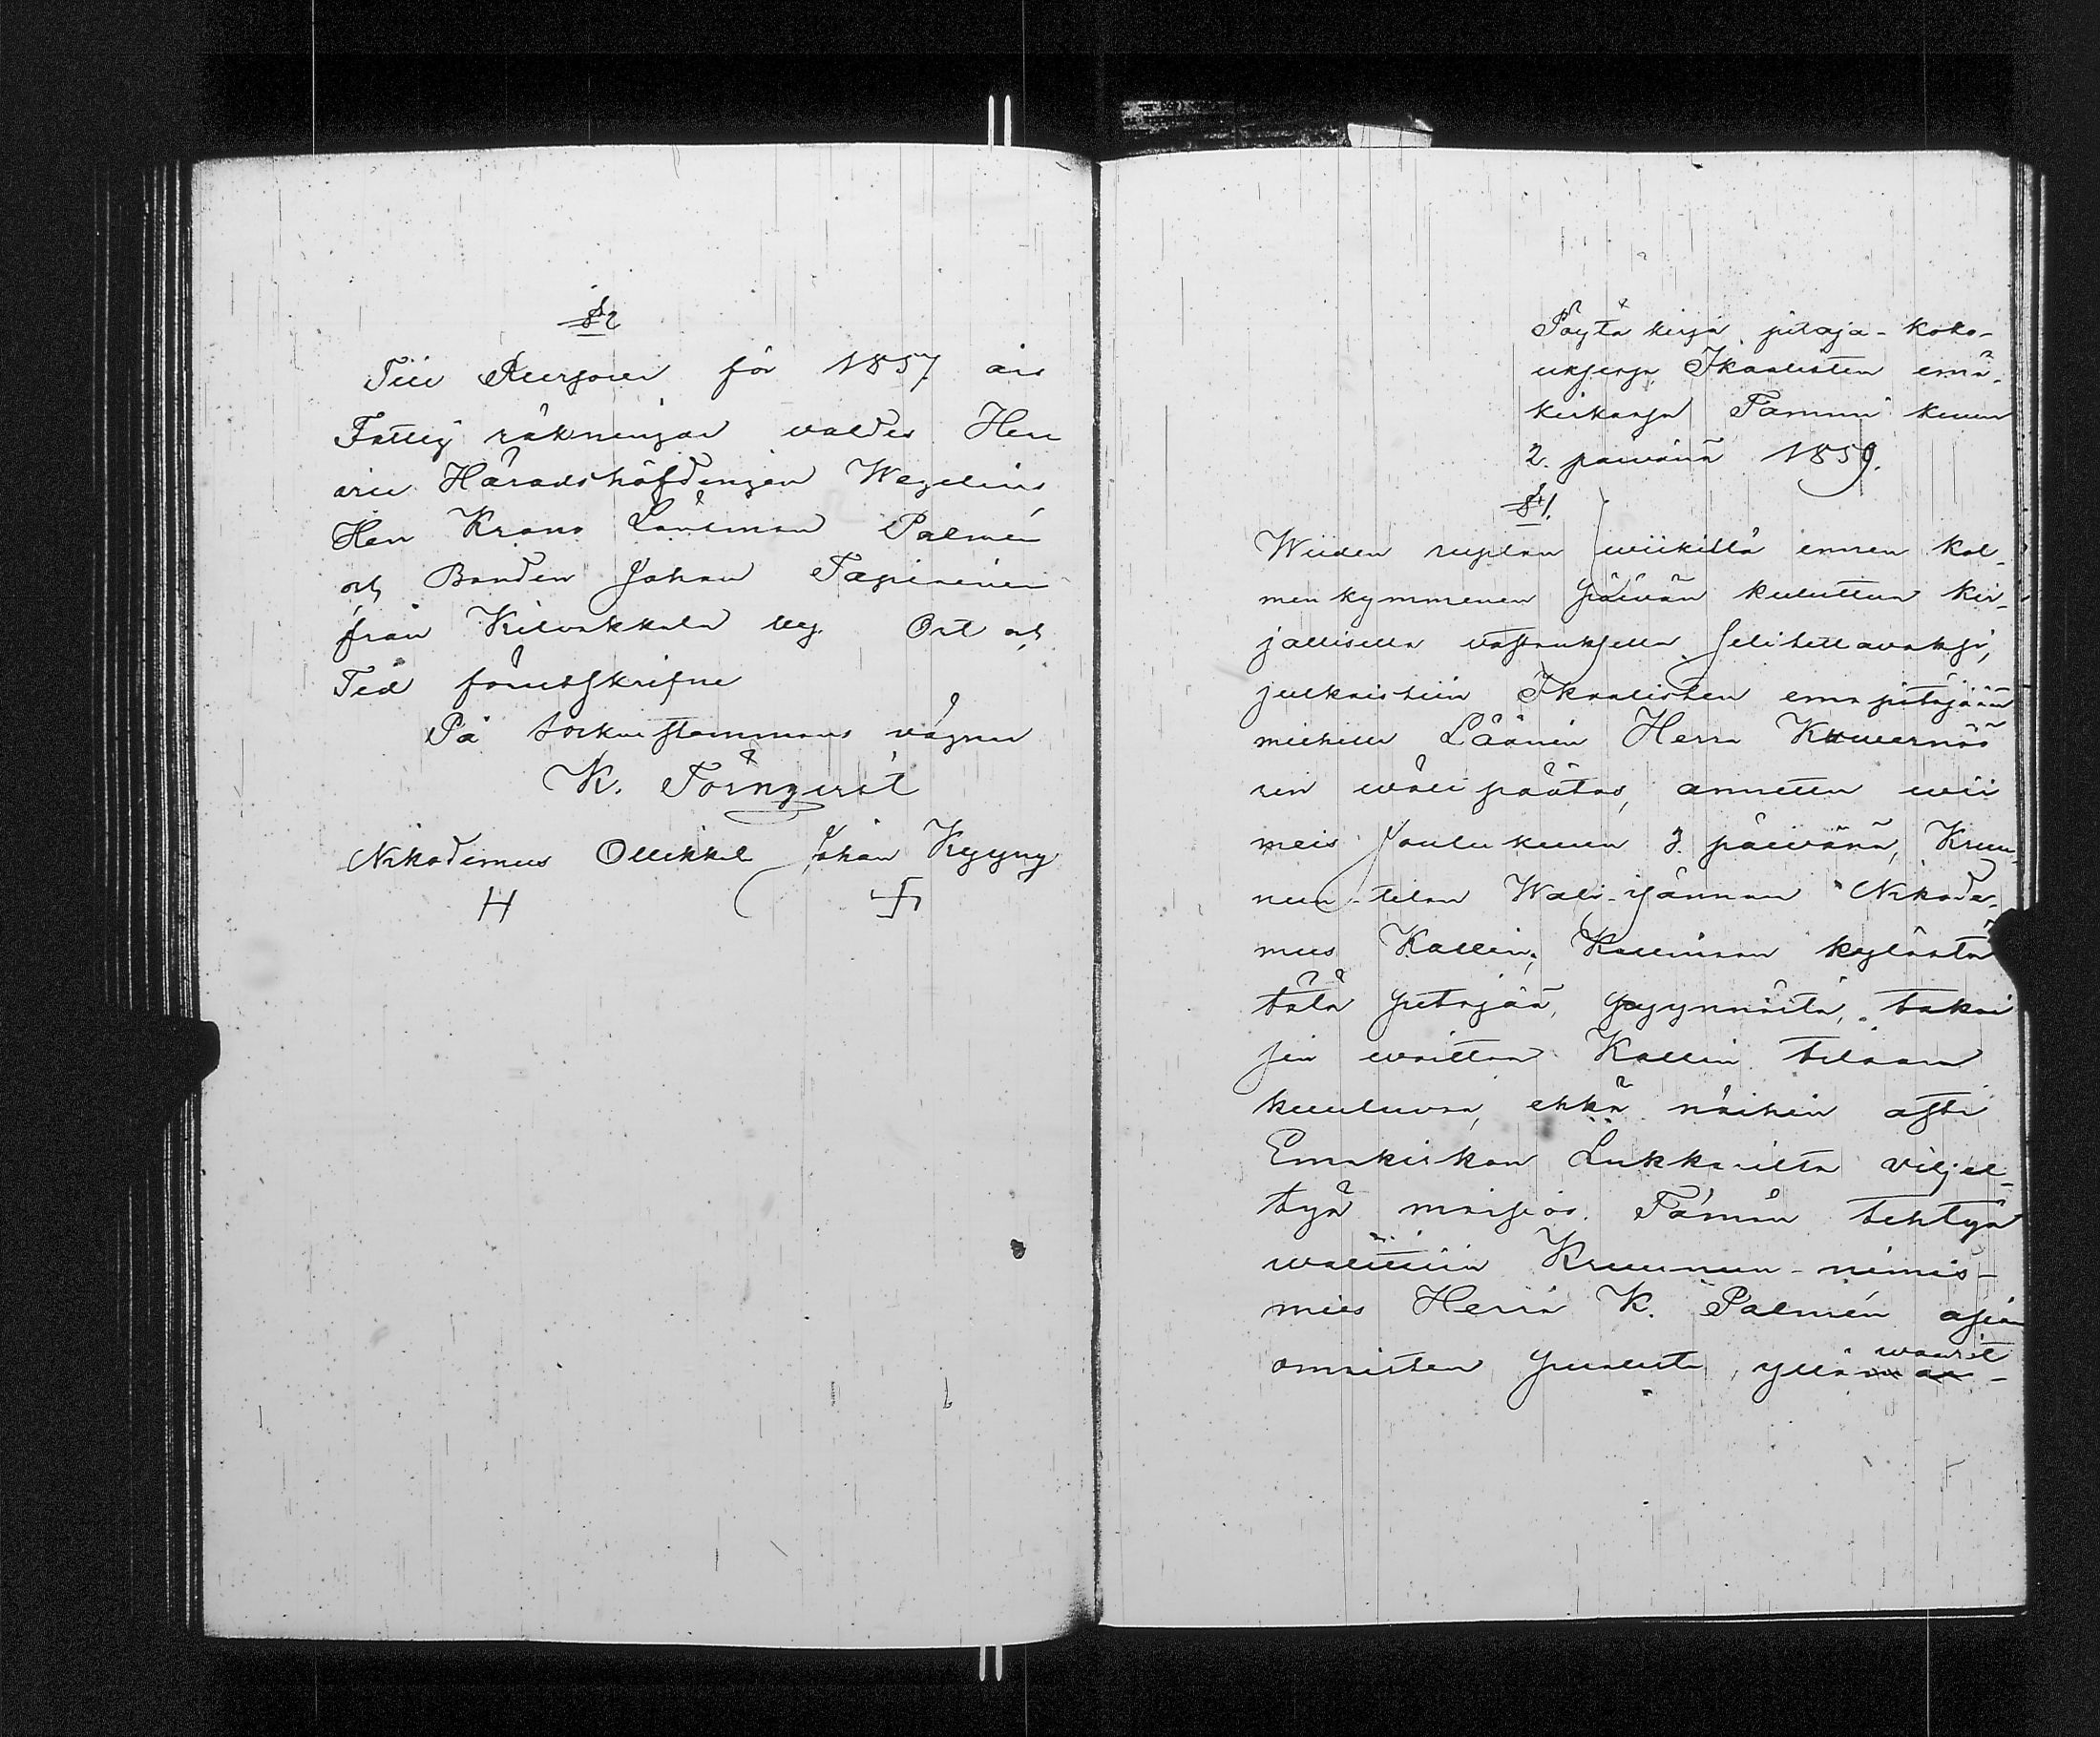 § 2
Till Revisorer för 1857 års
Fattig räkningar valdes Herr
vice Häradshöfdingen Wegelius
Herr Krono Länsman Palmén
och Bonden Johan Tapininen
från Kilvakkala by. Ort och
Tid förutskrifne
På sockenstämmans vägnar
K. Törnqvist
Nikodemus Ollikkal Johan Kyyny
Pöytä kirja pitäjä-koko-
uksesa Ikaalisten emä-
kirkosa Tammi kuun
2. päivänä 1859.
§ 1.
Wiiden ruplan uhkillä ennen kol-
menkymmenen päivän kuluttua kir-
jallisella vastauksella selitettäväksi,
julkaistiin Ikaalisten emäpitäjään
miehille Läänin Herra Kuvernöö
rin väli päätös, annettu vii
meis Joulu kuun 3. päivänä, Kruu-
nun-tilan Wali-isännän Nikode-
mus Kallin, Kallinaan kylästä
tätä pitäjää, pyynnöstä, takai
sin voittaa Kallin tilaan
kuuluvaa, ehkä näihin asti
Emäkirkon Lukkarilta viljel-
tyä maisiös. Tämän tehtyä
valittiin Kruunun-nimis-
mies Herra K. Palmén asian
omaisten puolesta, yllä mai-